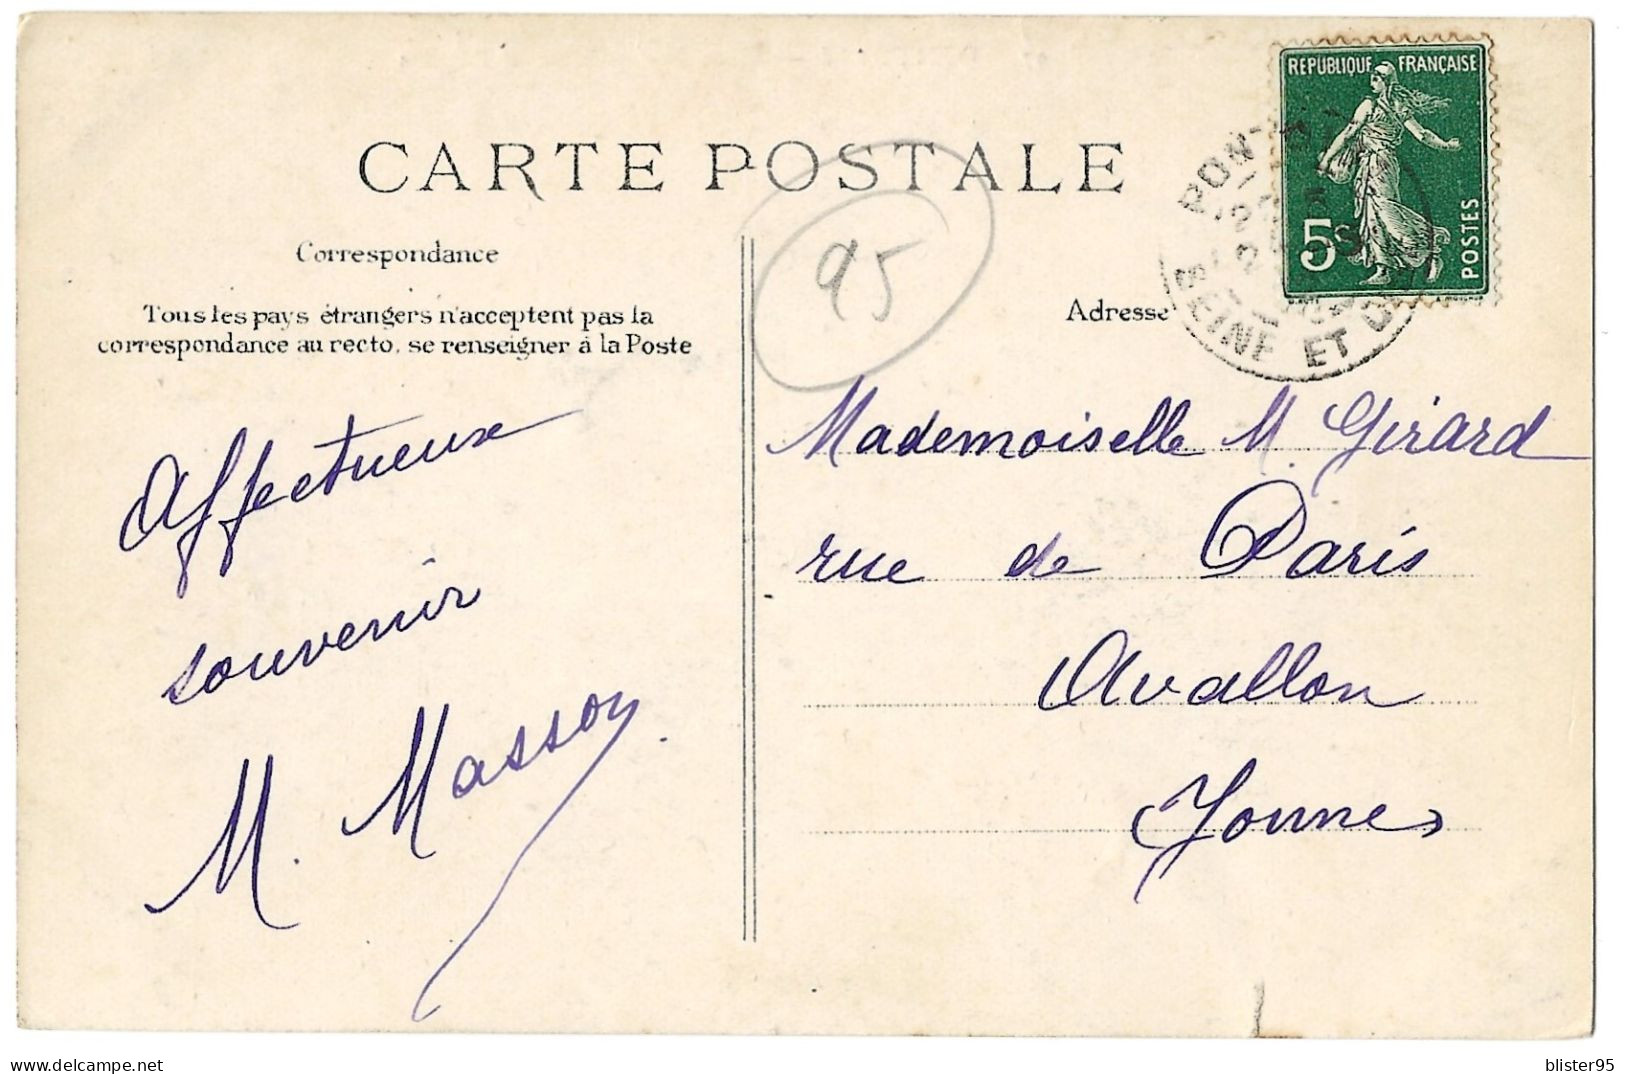 CARTE POSTALE
Correspondance
Tous les pays étrangers n'acceptent pas la
correspondance au recto, se renseigner à la Poste
Affectueux
souvenir
M. Masson
95
Adresse
REPUBLIQUE FRANÇAISE
5c
POSTES
PONT
SEINE ET
Mademoiselle M. Girard
rue de Paris
Avallon
Yonne
delcampe.net
blister95